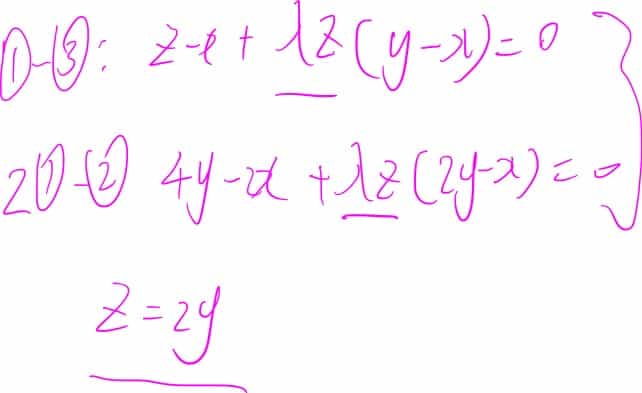 ①-③: z-x + λz(y-x)=0
2①-② 4y-2x + λz(2y-x)=0
z=2y